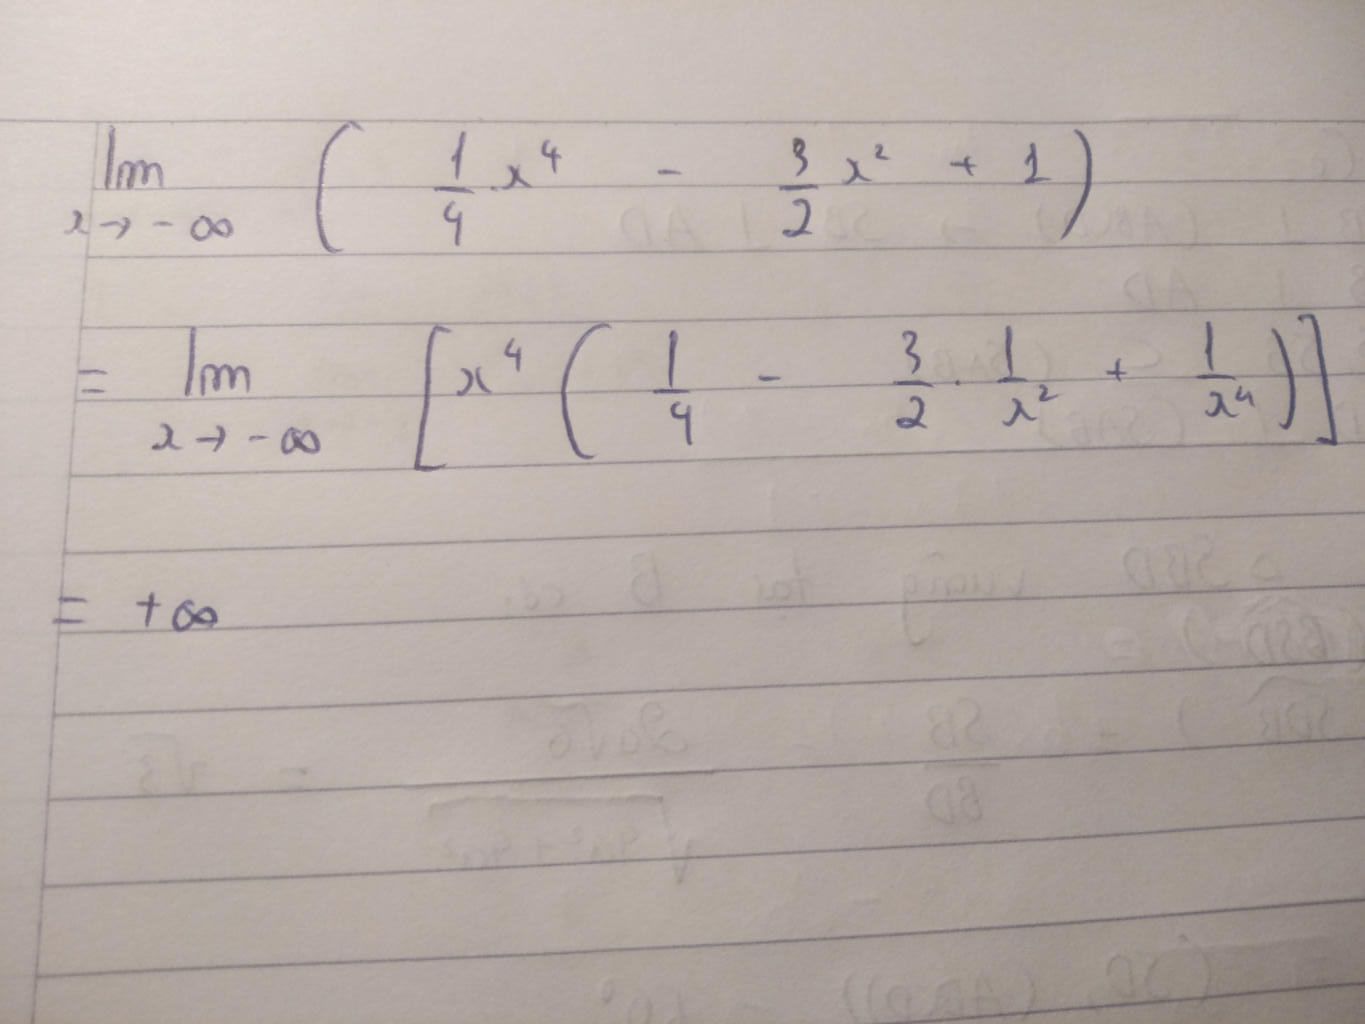 lim x→-∞ ( 1/4 . x⁴ - 3/2 x² + 1 )
= lim x→-∞ [ x⁴ ( 1/4 - 3/2 . 1/x² + 1/x⁴ ) ]
= +∞